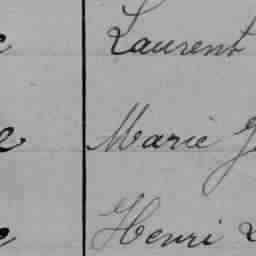 Laurent
Marie
Henri